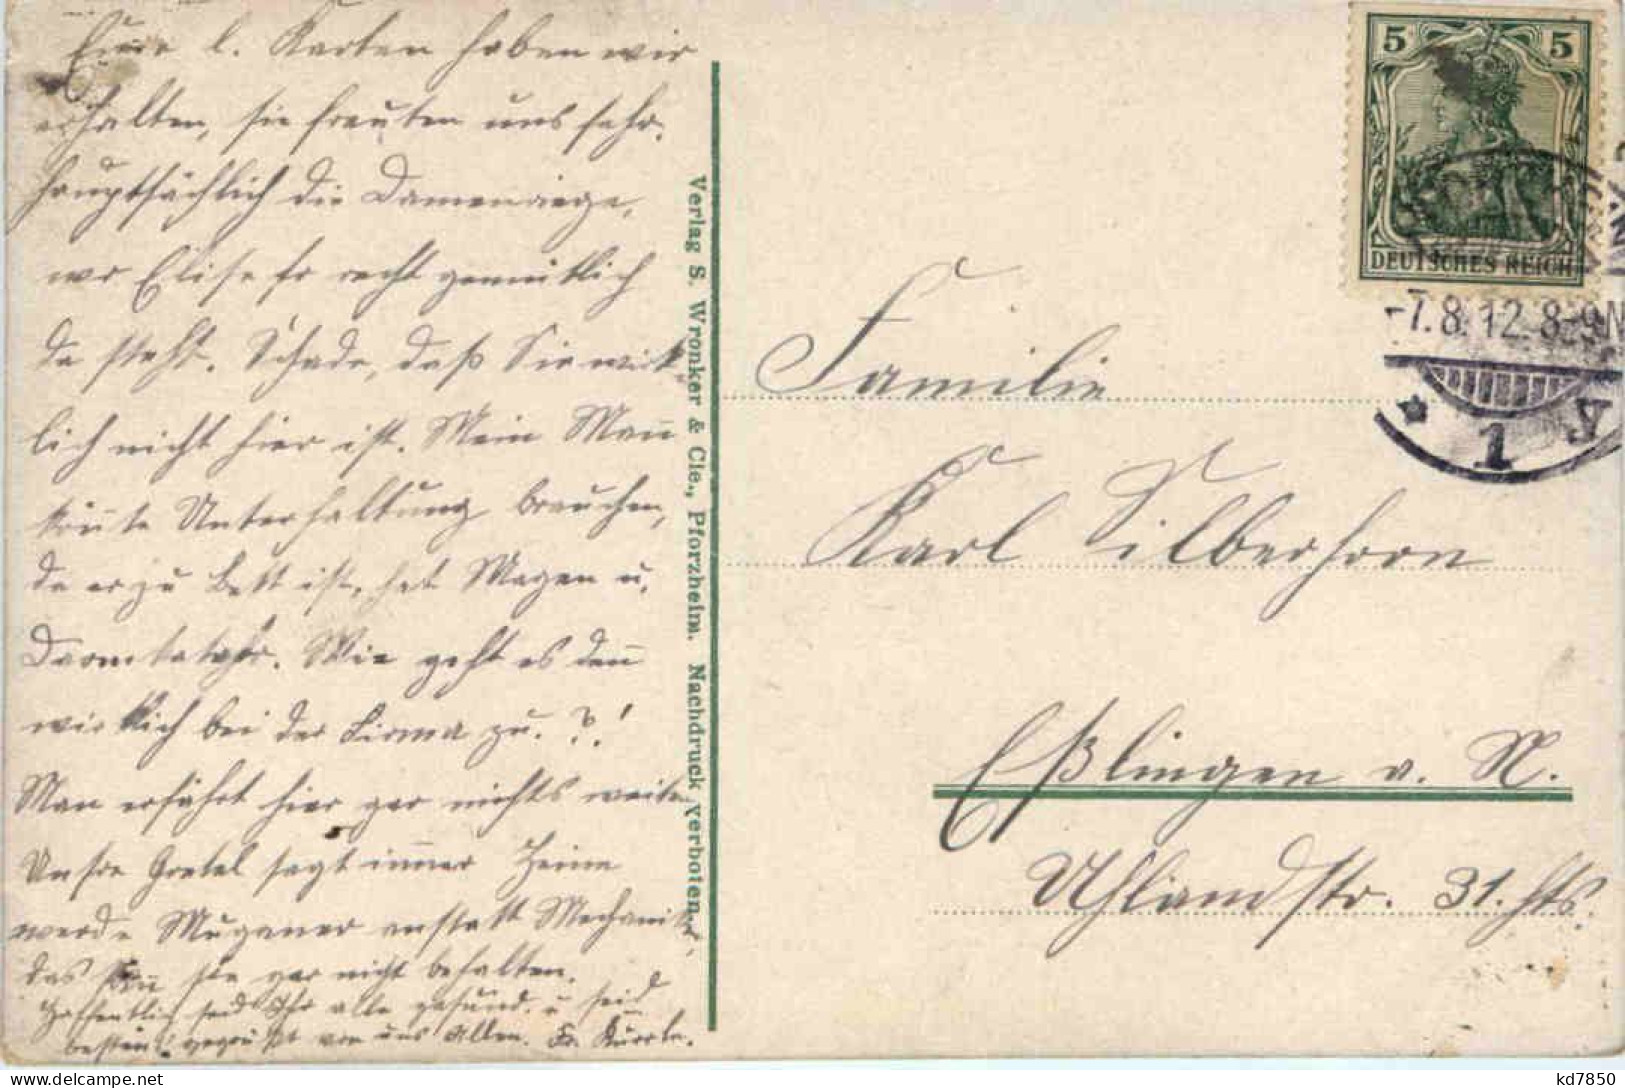 Eure l. Karten haben wir
erhalten, sie freuten uns sehr,
hauptsächlich die Damenriege,
wo Elise so recht gemütlich
da steht. Schade, daß Sie wirk-
lich nicht hier ist. Mein Mann
könnte Unterhaltung brauchen,
da er zu Bett ist, hat Magen u.
Darmkatarrh. Wie geht es denn
wirklich bei der Firma zu. ?!
Man erfährt hier gar nichts weiter
Unsre Gretel sagt immer Heine
werde Muganer anstatt Mechaniker,
das kann sie gar nicht behalten.
Hoffentlich seid Ihr alle gesund. u seid
bestens gegrüßt von uns Allen. Fr. Kurrle.
Verlag S. Wronker & Cie., Pforzheim. Nachdruck verboten.
5 5
DEUTSCHES REICH
-7.8.12.8-9N
* 1
Familie
Karl Silberhorn
Eßlingen a. N.
Uhlandstr. 31. Hts.
kd7850